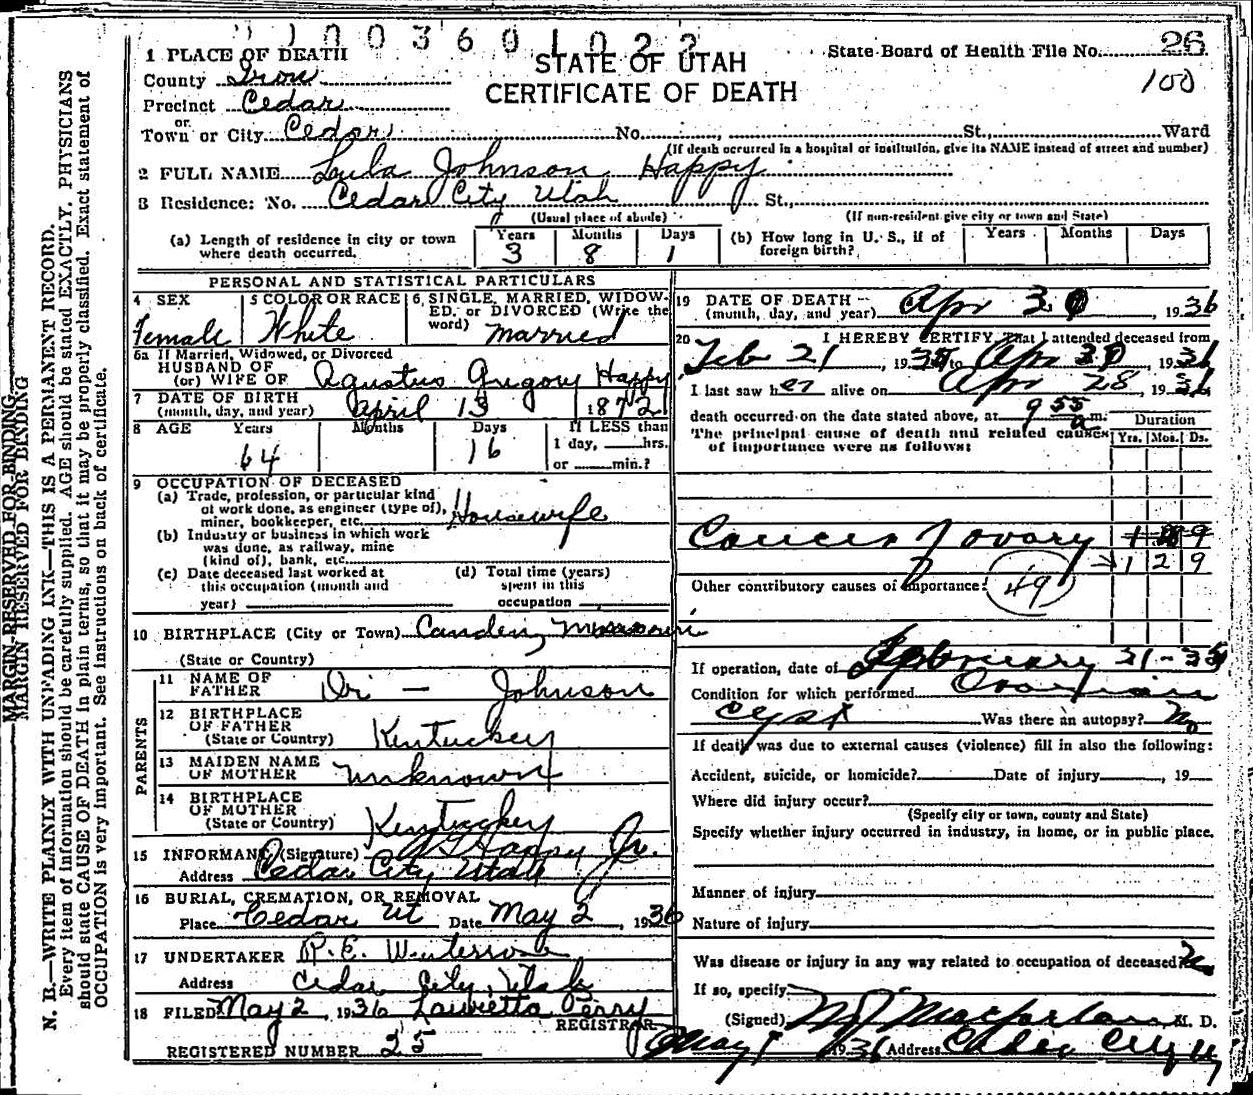 1003601022
STATE OF UTAH
CERTIFICATE OF DEATH
State Board of Health File No. 26
100
1 PLACE OF DEATH
County Iron
Precinct Cedar
or
Town or City Cedar No. , St., Ward
(If death occurred in a hospital or institution, give its NAME instead of street and number)
2 FULL NAME Lula Johnson Happy
3 Residence: No. Cedar City Utah St.,
(Usual place of abode) (If non-resident give city or town and State)
(a) Length of residence in city or town where death occurred. Years 3 Months 8 Days 1
(b) How long in U. S., if of foreign birth? Years Months Days
PERSONAL AND STATISTICAL PARTICULARS
4 SEX Female
5 COLOR OR RACE White
6 SINGLE, MARRIED, WIDOWED, or DIVORCED (Write the word) married
6a If Married, Widowed, or Divorced
HUSBAND OF
(or) WIFE OF Agustus Gregory Happy
7 DATE OF BIRTH
(month, day, and year) April 13 1872
8 AGE Years 64 Months Days 16 If LESS than 1 day, hrs. or min.?
9 OCCUPATION OF DECEASED
(a) Trade, profession, or particular kind
of work done, as engineer (type of),
miner, bookkeeper, etc. Housewife
(b) Industry or business in which work
was done, as railway, mine
(kind of), bank, etc.
(c) Date deceased last worked at
this occupation (month and
year)
(d) Total time (years)
spent in this
occupation
10 BIRTHPLACE (City or Town) Camden, Missouri
(State or Country)
PARENTS
11 NAME OF
FATHER Ori — Johnson
12 BIRTHPLACE
OF FATHER
(State or Country) Kentucky
13 MAIDEN NAME
OF MOTHER unknown
14 BIRTHPLACE
OF MOTHER
(State or Country) Kentucky
15 INFORMANT (Signature) A G Happy Jr.
Address Cedar City Utah
16 BURIAL, CREMATION, OR REMOVAL
Place Cedar Ut Date May 2, 1936
17 UNDERTAKER R. E. Winterrose
Address Cedar City, Utah
18 FILED May 2, 1936 Lauretta Perry
REGISTRAR
REGISTERED NUMBER 25
19 DATE OF DEATH
(month, day, and year) Apr 30, 1936
20 I HEREBY CERTIFY, That I attended deceased from
Feb 21, 1935 to Apr 30, 1936
I last saw her alive on Apr 28, 1936,
death occurred on the date stated above, at 9 55 a m.
The principal cause of death and related causes
of importance were as follows:
Duration
Yrs. Mos. Ds.
Cancer of ovary
1 2 9
Other contributory causes of importance: 49
If operation, date of February 21-35
Condition for which performed Ovarian
cyst Was there an autopsy? No
If death was due to external causes (violence) fill in also the following:
Accident, suicide, or homicide? Date of injury , 19
Where did injury occur?
(Specify city or town, county and State)
Specify whether injury occurred in industry, in home, or in public place.
Manner of injury
Nature of injury
Was disease or injury in any way related to occupation of deceased? No
If so, specify
(Signed) M J Macfarlane M. D.
May 1 1936 Address Cedar City U
MARGIN RESERVED FOR BINDING
MARGIN RESERVED FOR BINDING
N. B.—WRITE PLAINLY WITH UNFADING INK—THIS IS A PERMANENT RECORD.
Every item of information should be carefully supplied. AGE should be stated EXACTLY. PHYSICIANS
should state CAUSE OF DEATH in plain terms, so that it may be properly classified. Exact statement of
OCCUPATION is very important. See instructions on back of certificate.